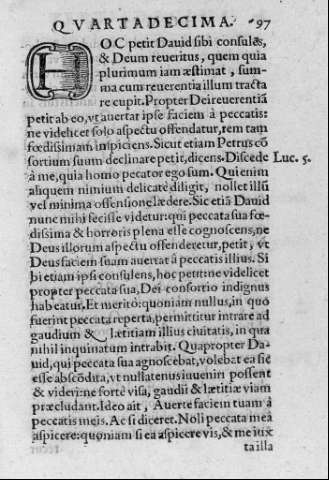 QVARTADECIMA. 97
HOC petit Dauid sibi consulẽs,
& Deum reueritus, quem quia
plurimum iam æstimat, sum-
ma cum reuerentia illum tracta
re cupit. Propter Dei reuerentiã
petit ab eo, vt auertat ipse faciem à peccatis:
ne videlicet solo aspectu offendatur, rem tam
fœdissimam inspiciens. Sicut etiam Petrus cõ
sortium suum declinare petit, dicens. Discede Luc. 5.
à me, quia homo peccator ego sum. Qui enim
aliquem nimium delicatè diligit, nollet illũ
vel minima offensione lædere. Sic etiã Dauid
nunc mihi fecisse videtur: qui peccata sua fœ-
dissima & horroris plena esse cognoscens, ne
Deus illorum aspectu offenderetur, petit, vt
Deus faciem suam auertat à peccatis illius. Si
bi etiam ipsi consulens, hoc petit: ne videlicet
propter peccata sua, Dei consortio indignus
habeatur. Et meritò: quoniam nullus, in quo
fuerint peccata reperta, permittitur intrare ad
gaudium & lætitiam illius ciuitatis, in quã
nihil inquinatum intrabit. Quapropter Da-
uid, qui peccata sua agnoscebat, volebat ea sic
esse abscõdita, vt nullatenus inueniri possent
& videri: ne fortè visa, gaudii & lætitiæ viam
præcludant. Ideo ait, Auerte faciem tuam à
peccatis meis. Ac si diceret. Noli peccata mea
aspicere: quoniam si ea aspicere vis, & me iux
ta illa